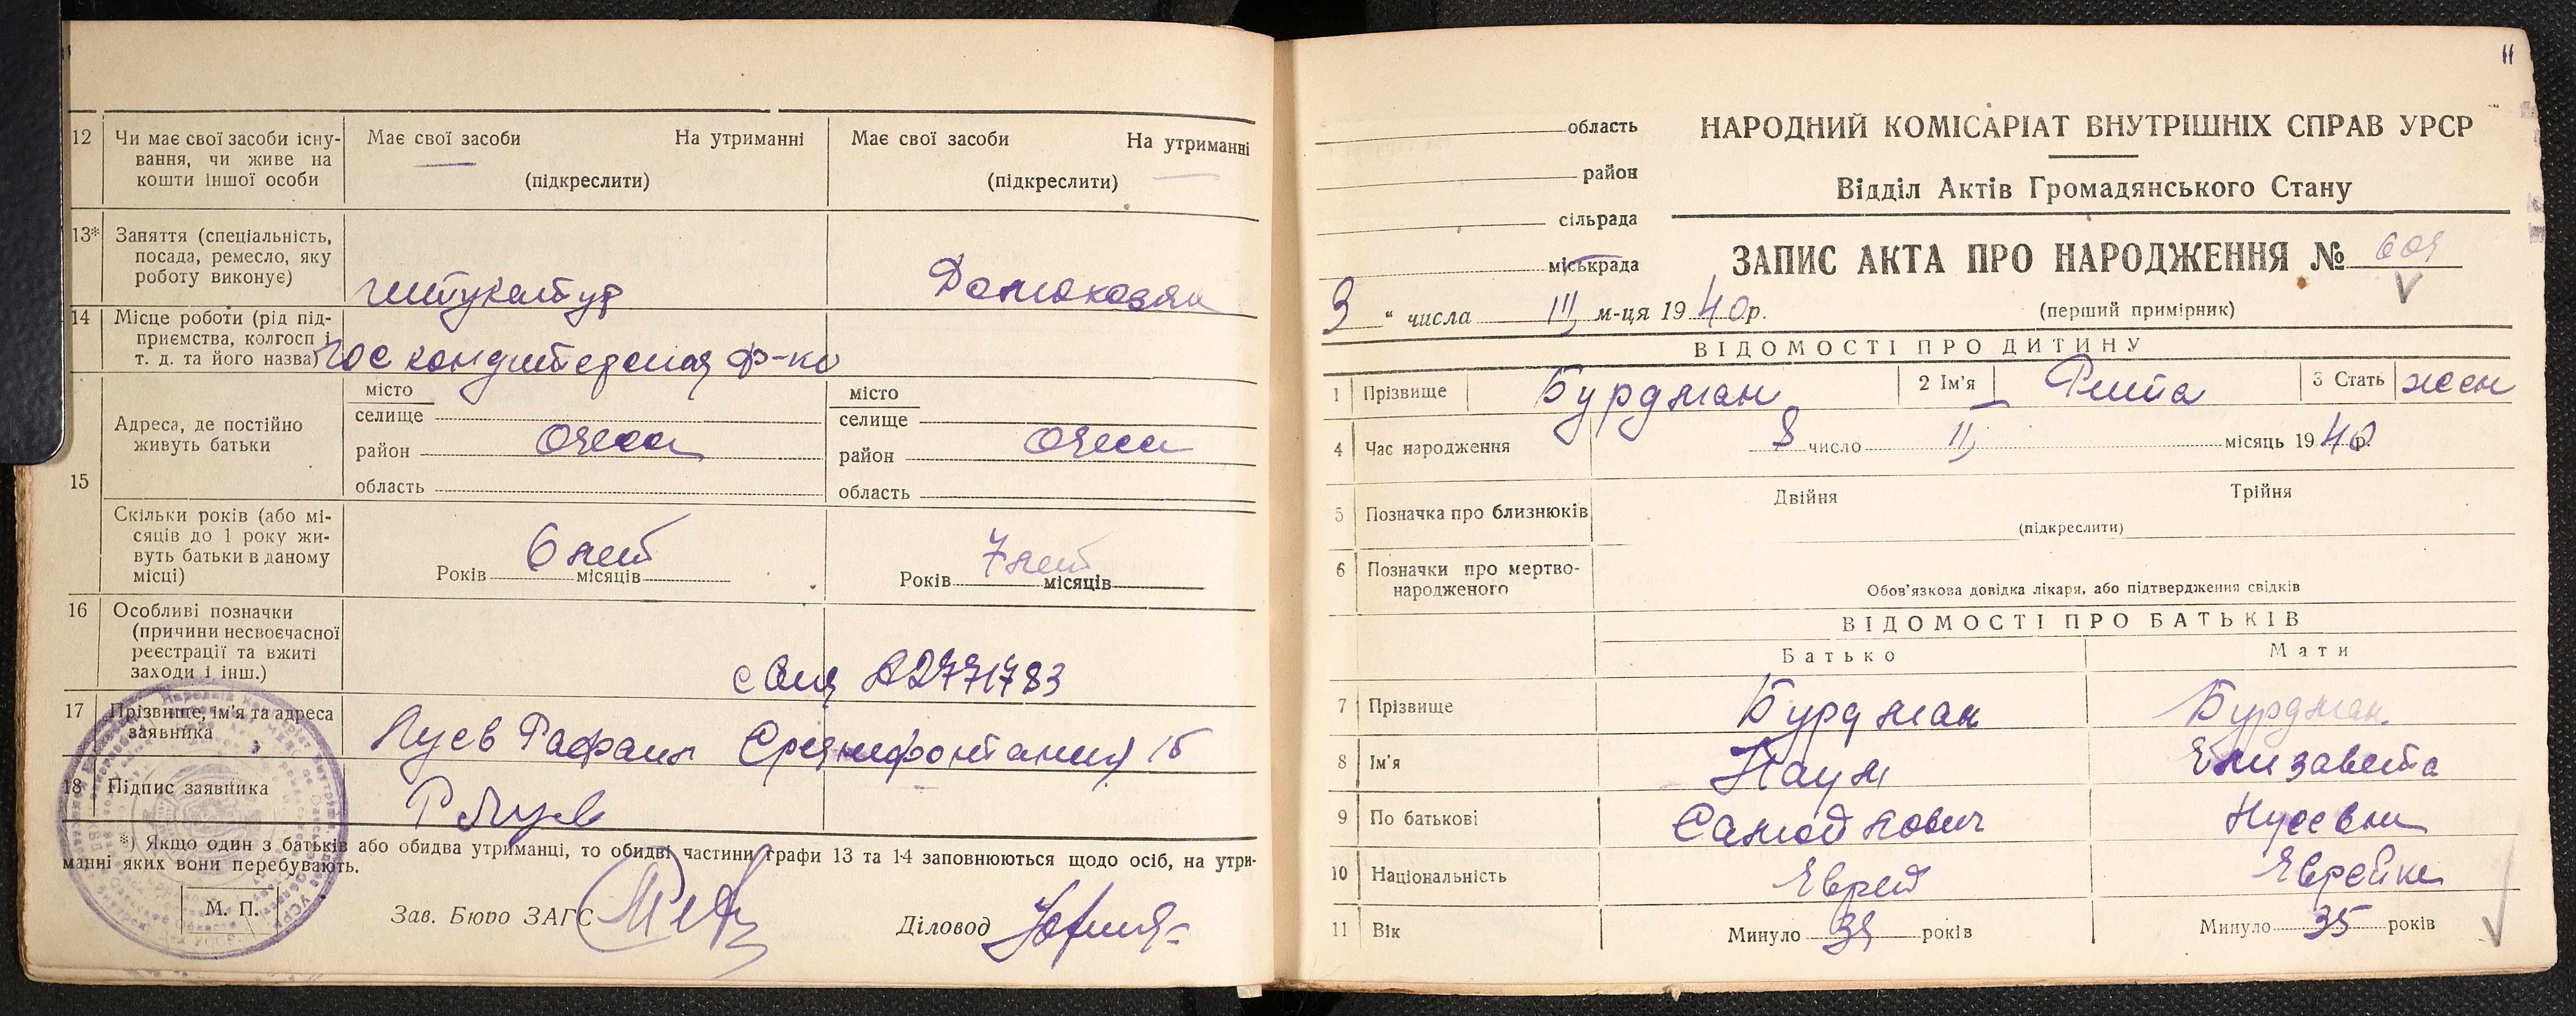 12 Чи має свої засоби існу-
вання, чи живе на
кошти іншої особи
Має свої засоби На утриманні
(підкреслити)
Має свої засоби На утриманні
(підкреслити)
13* Заняття (спеціальність,
посада, ремесло, яку
роботу виконує)
штукатур
Домохозяк
14 Місце роботи (рід під-
приємства, колгосп і
т. д. та його назва)
Гос кондитерская ф-ка
15 Адреса, де постійно
живуть батьки
місто
селище
район Одесса
область
місто
селище
район Одесса
область
Скільки років (або мі-
сяців до 1 року жи-
вуть батьки в даному
місці)
Років 6 лет місяців
Років 7 лет місяців
16 Особливі позначки
(причини несвоєчасної
реєстрації та вжиті
заходи і інш.)
17 Прізвище, ім'я та адреса
заявника
Рафаил Среднефонтания 15
18 Підпис заявника
*) Якщо один з батьків або обидва утриманці, то обидві частини графи 13 та 14 заповнюються щодо осіб, на утри-
манні яких вони перебувають.
М. П.
Зав. Бюро ЗАГС
Діловод
11
область
район
сільрада
міськрада
НАРОДНИЙ КОМІСАРІАТ ВНУТРІШНІХ СПРАВ УРСР
Відділ Актів Громадянського Стану
ЗАПИС АКТА ПРО НАРОДЖЕННЯ №
(перший примірник)
3 " числа III м-ця 1940р.
ВІДОМОСТІ ПРО ДИТИНУ
1 Прізвище Бурдман 2 Ім'я Рита 3 Стать жен
4 Час народження 8 число II місяць 1940р.
5 Позначка про близнюків Двійня Трійня
(підкреслити)
6 Позначки про мертво-
народженого
Обов'язкова довідка лікаря, або підтвердження свідків
ВІДОМОСТІ ПРО БАТЬКІВ
Батько Мати
7 Прізвище Бурдман Бурдман
8 Ім'я Наум Елизавета
9 По батькові Самойлович Нусевна
10 Національність Еврей Еврейка
11 Вік Минуло років Минуло 35 років